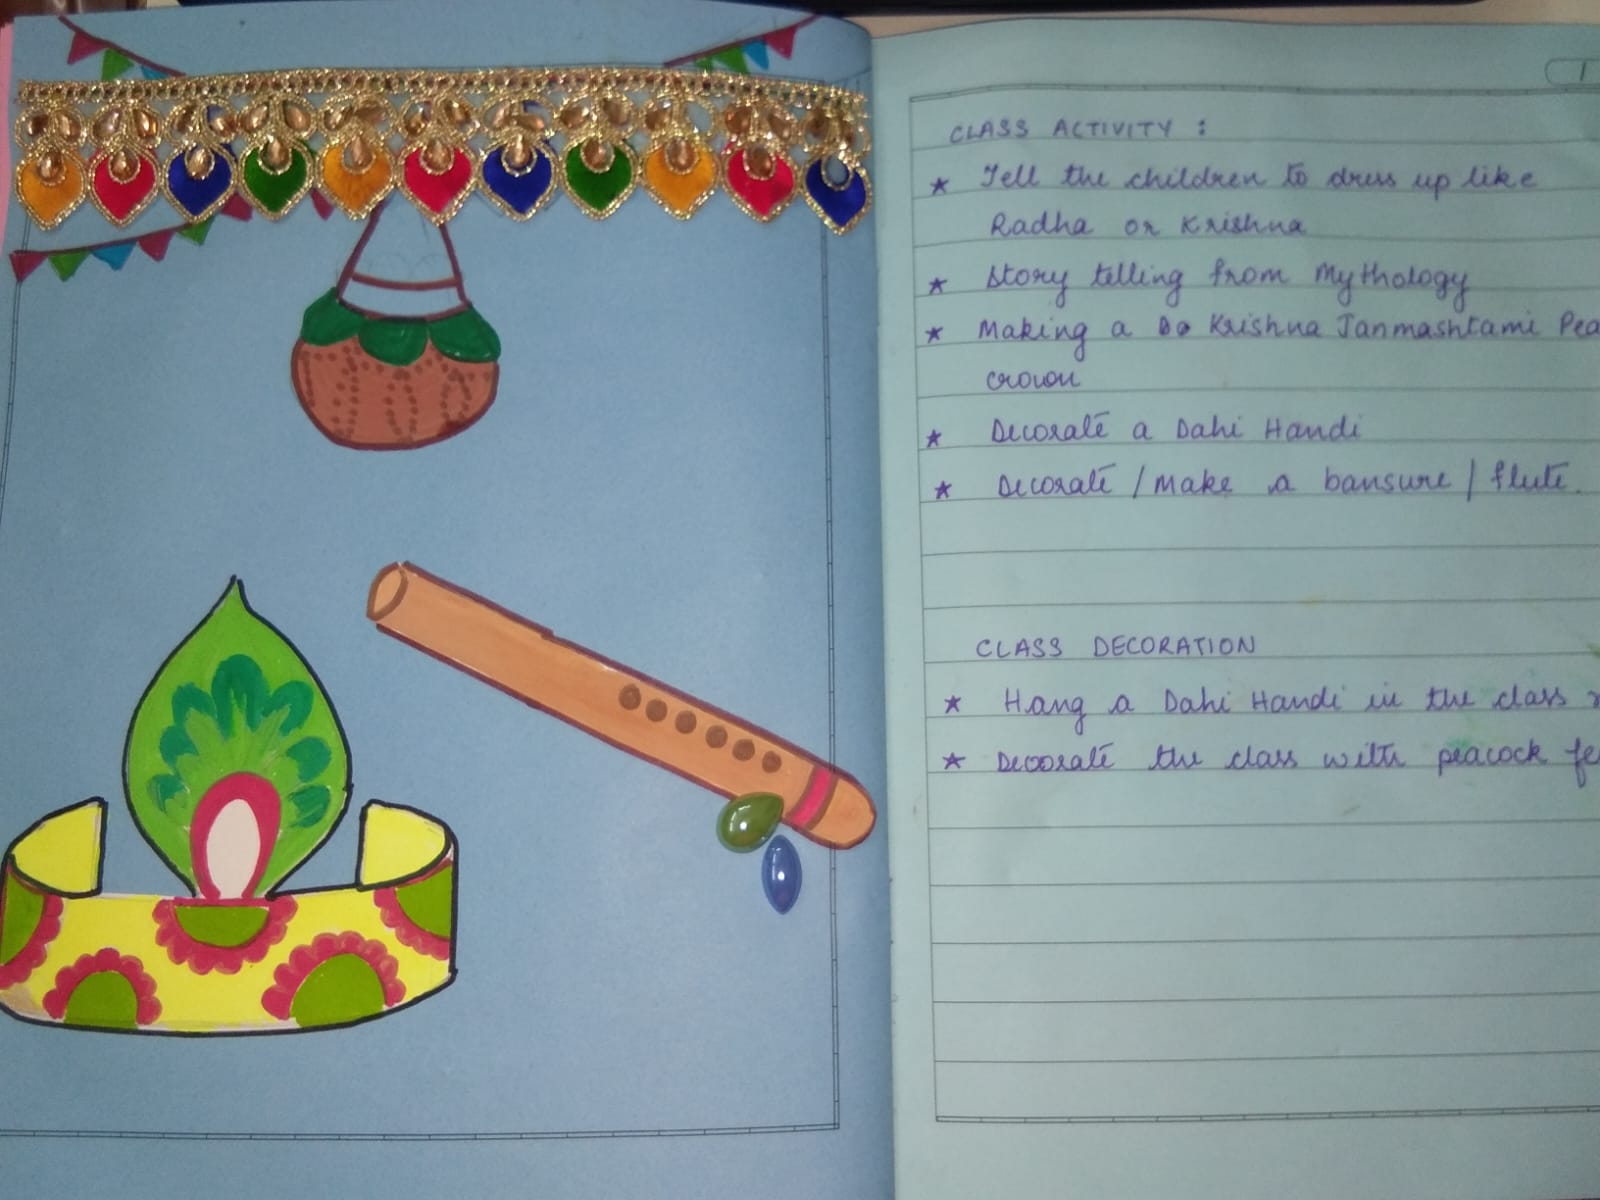 1
CLASS ACTIVITY :
★ Tell the children to dress up like
Radha or Krishna
★ Story telling from Mythology
★ Making a Do Krishna Janmashtami Pea
crown
★ Decorate a Dahi Handi
★ Decorate / Make a bansure / flute.
CLASS DECORATION
★ Hang a Dahi Handi in the class r
★ Decorate the class with peacock fe